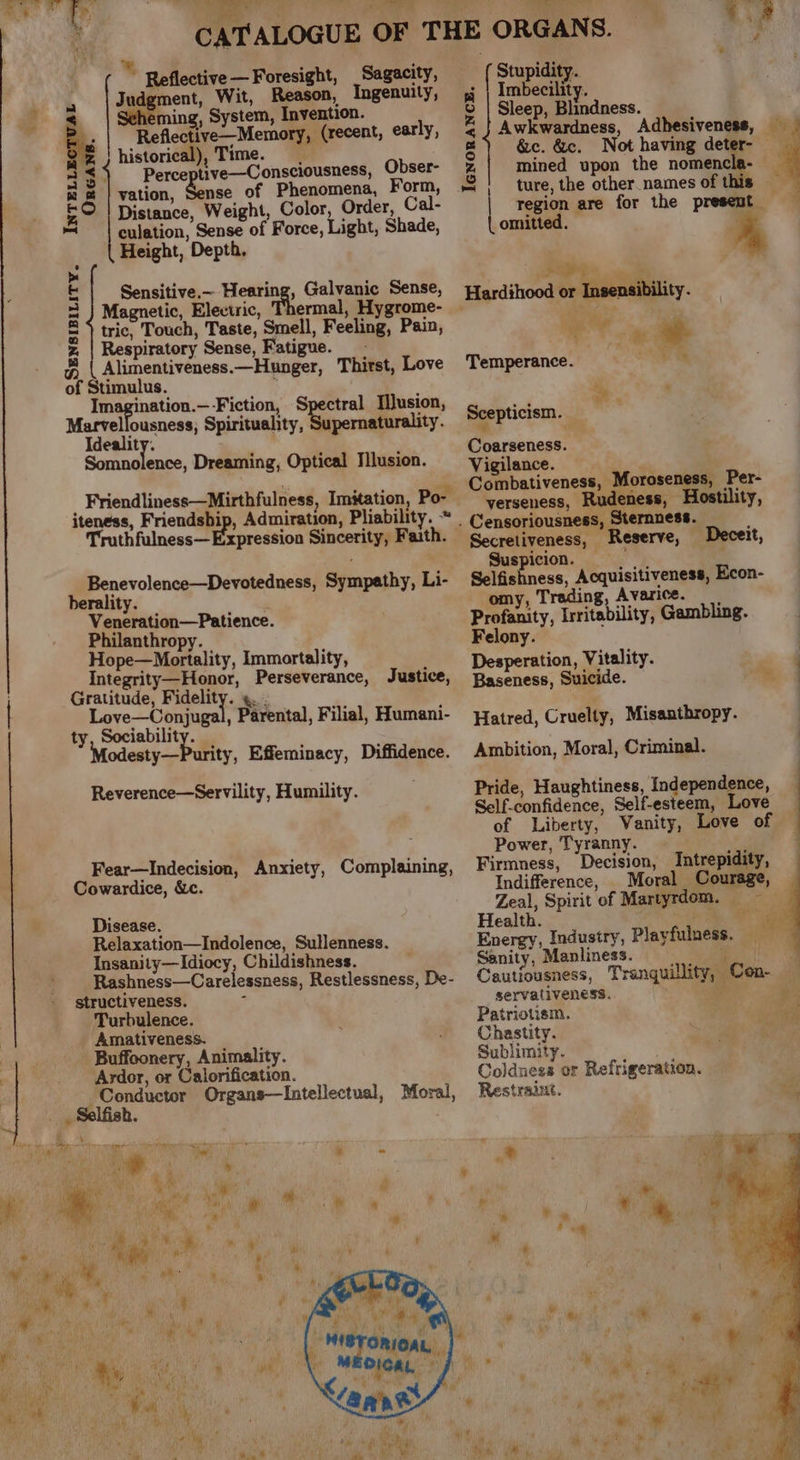 CATALOGUE OF THE ORGANS.
INTELLECTUAL ORGANS.
Reflective—Foresight, Sagacity,
Judgment, Wit, Reason, Ingenuity,
Scheming, System, Invention.
Reflective—Memory, (recent, early,
historical), Time.
Perceptive—Consciousness, Obser-
vation, Sense of Phenomena, Form,
Distance, Weight, Color, Order, Cal-
culation, Sense of Force, Light, Shade,
Height, Depth.
SENSIBILITY.
Sensitive.—Hearing, Galvanic Sense,
Magnetic, Electric, Thermal, Hygrome-
tric, Touch, Taste, Smell, Feeling, Pain,
Respiratory Sense, Fatigue.
Alimentiveness.—Hunger, Thirst, Love
of Stimulus.
Imagination.—Fiction, Spectral Illusion,
Marvellousness, Spirituality, Supernaturality.
Ideality.
Somnolence, Dreaming, Optical Illusion.
Friendliness—Mirthfulness, Imitation, Po-
iteness, Friendship, Admiration, Pliability.
Truthfulness—Expression Sincerity, Faith.
Benevolence—Devotedness, Sympathy, Li-
berality.
Veneration—Patience.
Philanthropy.
Hope—Mortality, Immortality,
Integrity—Honor, Perseverance, Justice,
Gratitude, Fidelity.
Love—Conjugal, Parental, Filial, Humani-
ty, Sociability.
Modesty—Purity, Effeminacy, Diffidence.
Reverence—Servility, Humility.
Fear—Indecision, Anxiety, Complaining,
Cowardice, &c.
Disease.
Relaxation—Indolence, Sullenness.
Insanity—Idiocy, Childishness.
Rashness—Carelessness, Restlessness, De-
structiveness.
Turbulence.
Amativeness.
Buffoonery, Animality.
Ardor, or Calorification.
Conductor Organs—Intellectual, Moral,
Selfish.
IGNORANCE.
Stupidity.
Imbecility.
Sleep, Blindness.
Awkwardness, Adhesiveness,
&c. &c. Not having deter-
mined upon the nomencla-
ture, the other names of this
region are for the present
omitted.
Hardihood or Insensibility.
Temperance.
Scepticism.
Coarseness.
Vigilance.
Combativeness, Moroseness, Per-
verseness, Rudeness, Hostility,
Censoriousness, Sternness.
Secretiveness, Reserve, Deceit,
Suspicion.
Selfishness, Acquisitiveness, Econ-
omy, Trading, Avarice.
Profanity, Irritability, Gambling.
Felony.
Desperation, Vitality.
Baseness, Suicide.
Hatred, Cruelty, Misanthropy.
Ambition, Moral, Criminal.
Pride, Haughtiness, Independence,
Self-confidence, Self-esteem, Love
of Liberty, Vanity, Love of
Power, Tyranny.
Firmness, Decision, Intrepidity,
Indifference, Moral Courage,
Zeal, Spirit of Martyrdom.
Health.
Energy, Industry, Playfulness.
Sanity, Manliness.
Cautiousness, Tranquillity, Con-
servativeness.
Patriotism.
Chastity.
Sublimity.
Coldness or Refrigeration.
Restraint.
WELLCOME
HISTORICAL
MEDICAL
LIBRARY